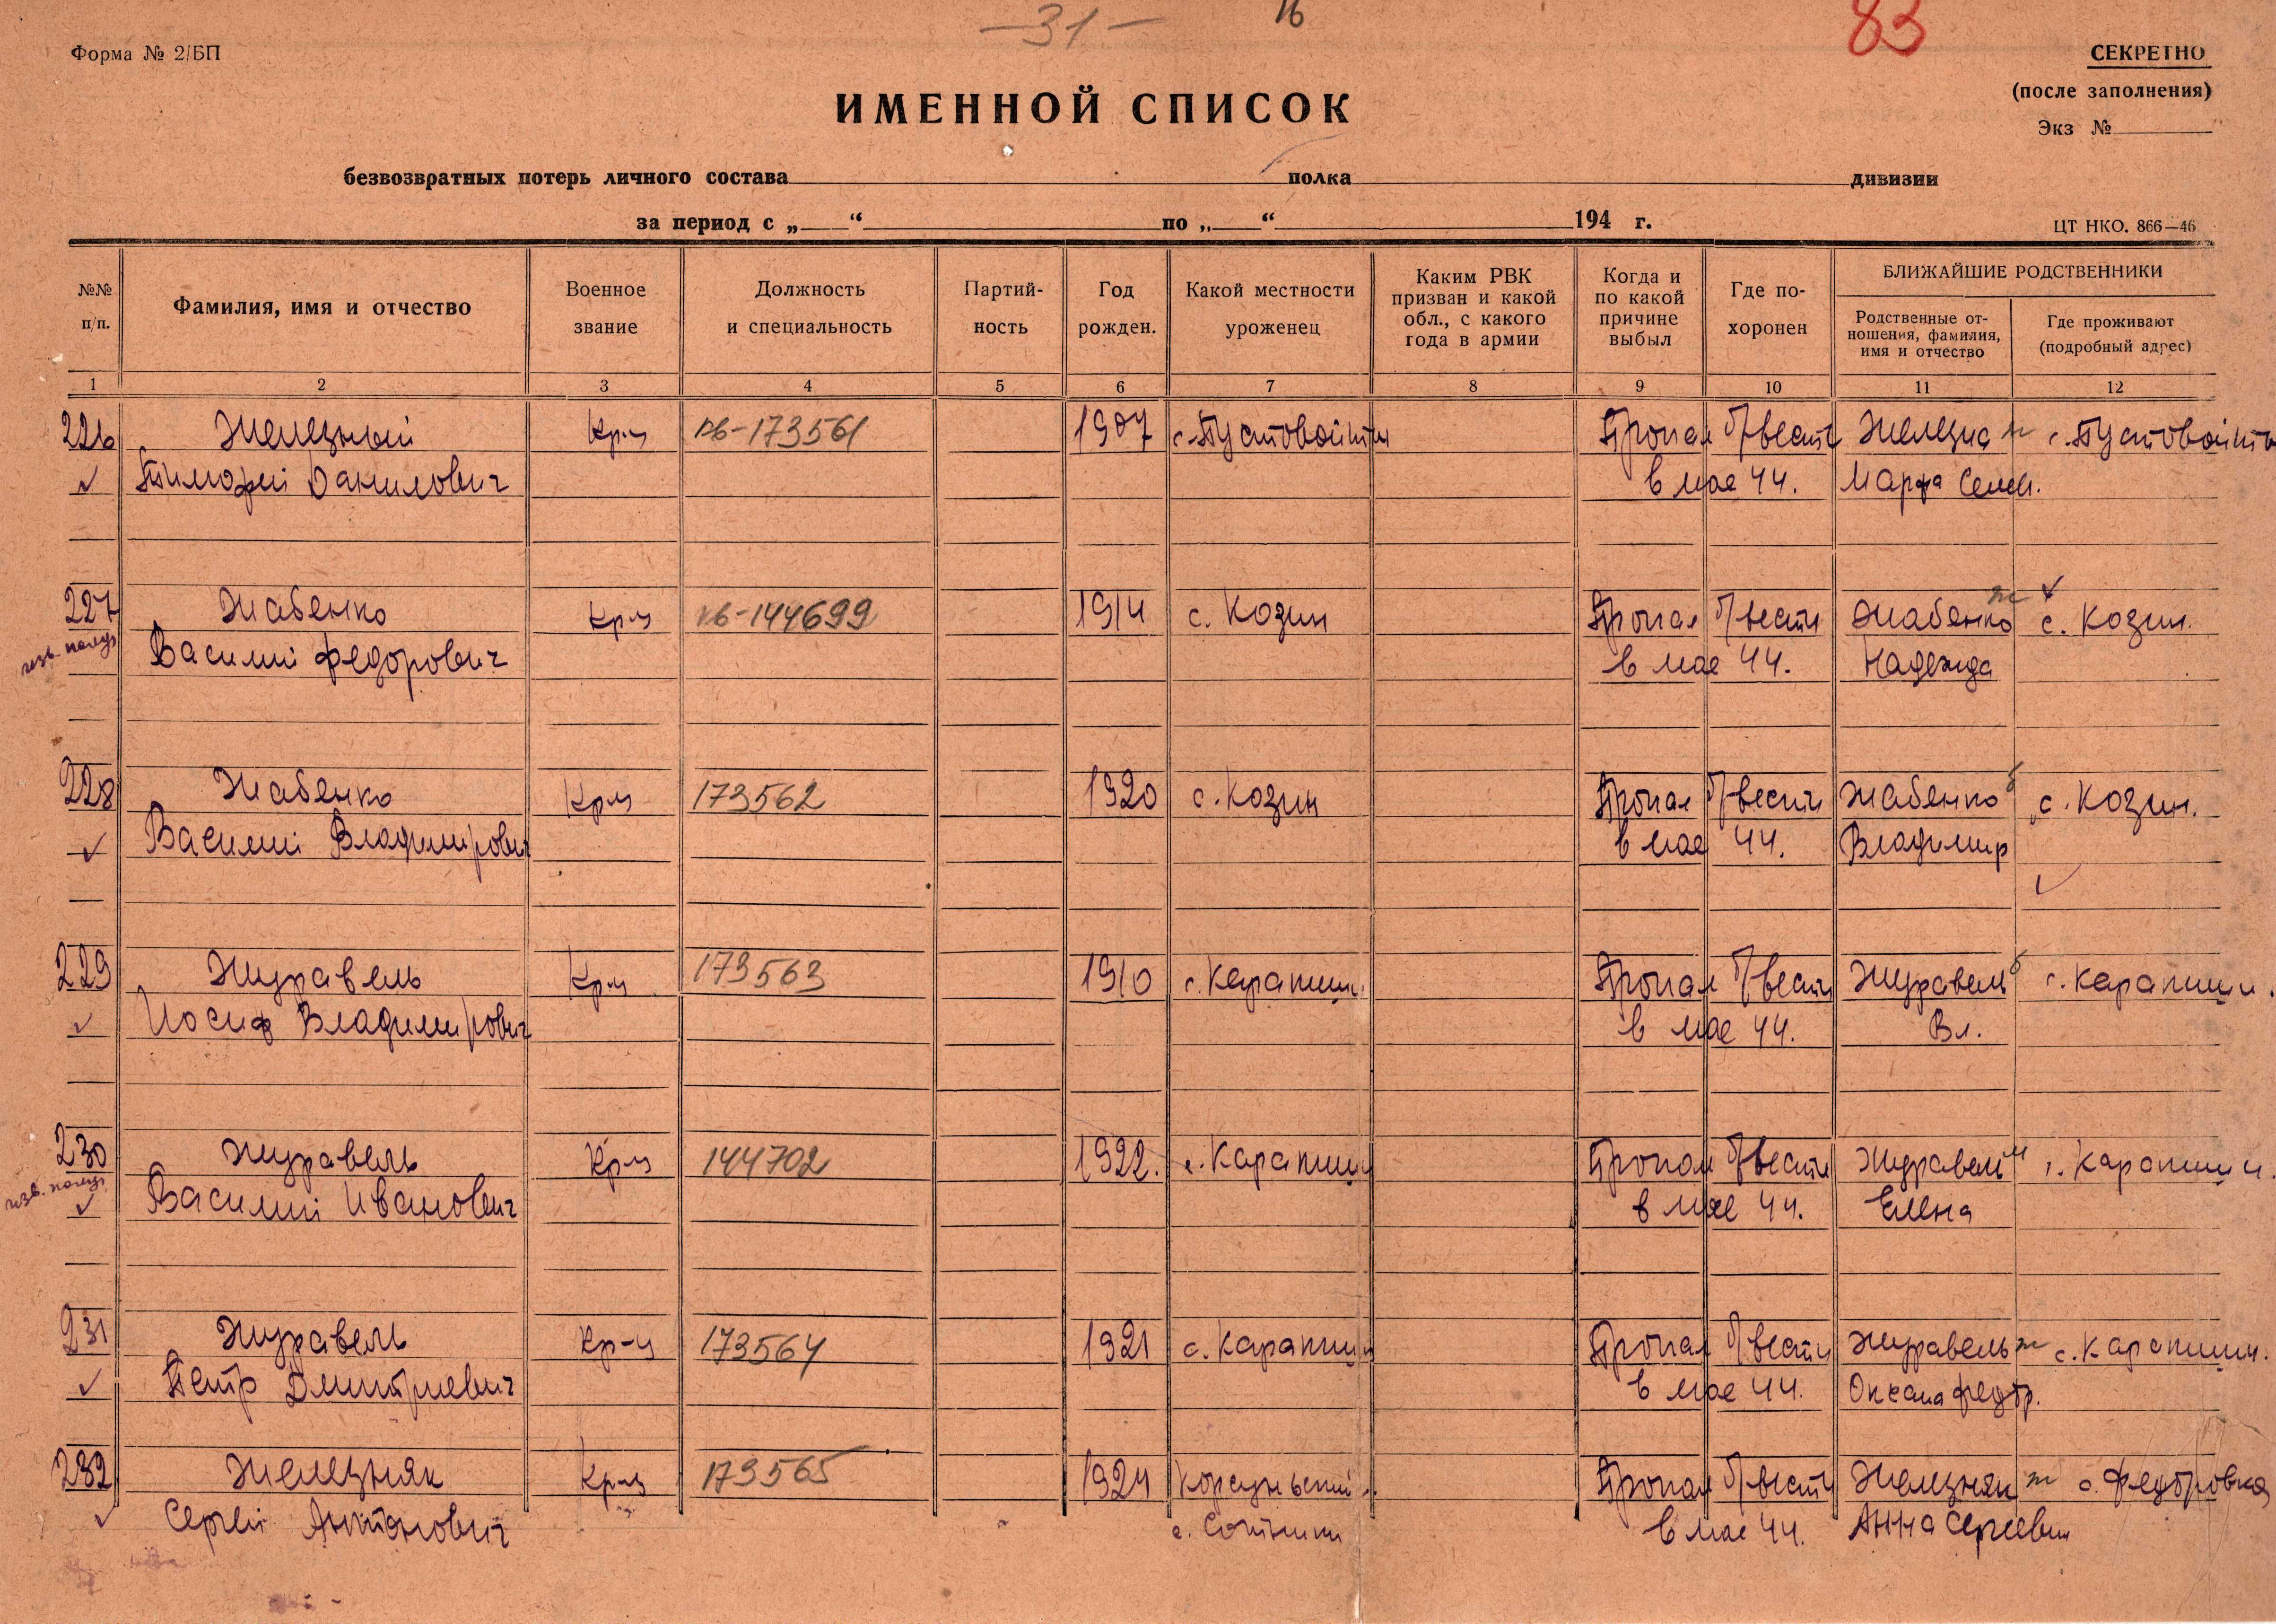 -31- 16 83
Форма № 2/БП
СЕКРЕТНО
(после заполнения)
Экз №
ИМЕННОЙ СПИСОК
безвозвратных потерь личного состава полка дивизии
за период с „ “ по „ “ 194 г.
ЦТ НКО. 866—46
№№ п/п.
Фамилия, имя и отчество
Военное звание
Должность и специальность
Партий- ность
Год рожден.
Какой местности уроженец
Каким РВК призван и какой обл., с какого года в армии
Когда и по какой причине выбыл
Где по- хоронен
БЛИЖАЙШИЕ РОДСТВЕННИКИ
Родственные от- ношения, фамилия, имя и отчество
Где проживают (подробный адрес)
1 2 3 4 5 6 7 8 9 10 11 12
226 Железный Кр-ц пв-173561 1907 с. Пустовойты Пропал б/вести Железна ж с. Пустовойты
Тимофей Данилович в мае 44. Марфа Семен.
227 Жабенко Кр-ц пв-144699 1914 с. Козин Пропал б/вести Жабенко ж с. Козин.
изв. получ Василий Федорович в мае 44. Надежда
228 Жабенко Кр-ц 173562 1920 с. Козин Пропал б/вести Жабенко с. Козин.
Василий Владимирович в мае 44. Владимир
229 Журавель Кр-ц 173563 1910 с. Карапиши Пропал б/вести Журавель с. Карапиши.
Иосиф Владимирович в мае 44. Вл.
230 Журавель Кр-ц 144702 1922. с. Карапиши Пропал б/вести Журавель м с. Карапиши.
изв. получ Василий Иванович в мае 44. Елена
231 Журавель Кр-ц 173564 1921 с. Карапиши Пропал б/вести Журавель ж с. Карапиши.
Петр Дмитриевич в мае 44. Оксана Федор.
232 Железняк Кр-ц 173565 1924 Корсуньский Пропал б/вести Железняк ж с. Федоровка
Сергей Антонович с. Сотники в мае 44. Анна Сергеевна